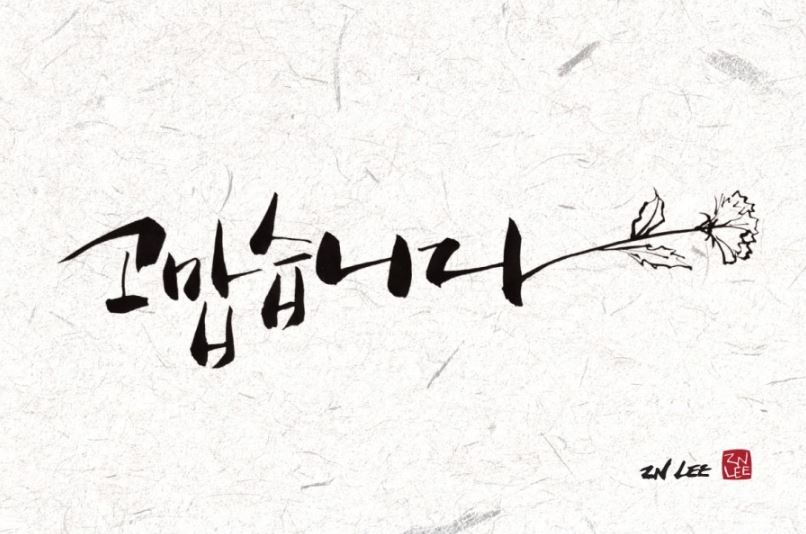 고맙습니다
ZN LEE
ZN
LEE